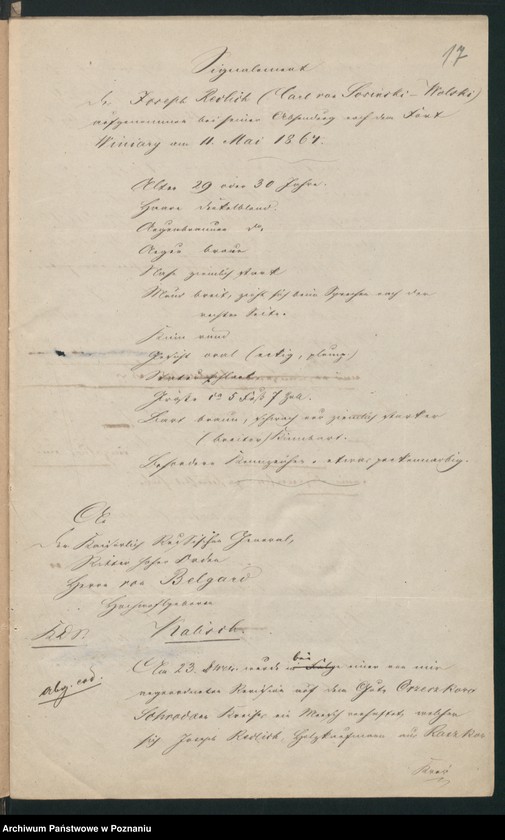 17
Signalement
des Joseph Redlich (Carl von Sosinski-Wolski)
aufgenommen bei seiner Absendung nach dem Fort
Winiary am 11. Mai 1864.
Alter 29 oder 30 Jahre.
Haare dunkelblond.
Augenbraunen do.
Augen braun
Nase ziemlich stark
Mund breit, zieht sich beim Sprechen nach der
rechten Seite.
Kinn rund
Gesicht oval (eckig, plump.)
Größe ca 5 Fuß 7 Zoll.
Bart braun, schwach und ziemlich starker
(breiter) Kinnbart.
Besondere Kennzeichen: etwas pockennarbig.
An
den Kaiserlich Russischen General,
Ritter hoher Orden
Herrn von Belgard
Hochwohlgeboren
Kalisch.
Am 23. wurde bei einer von mir
angeordneten Revision auf dem Gute
Schrodaer Kreises ein Mensch verhaftet, welcher
sich Joseph Redlich, Holzkaufmann aus
Archiwum Państwowe w Poznaniu